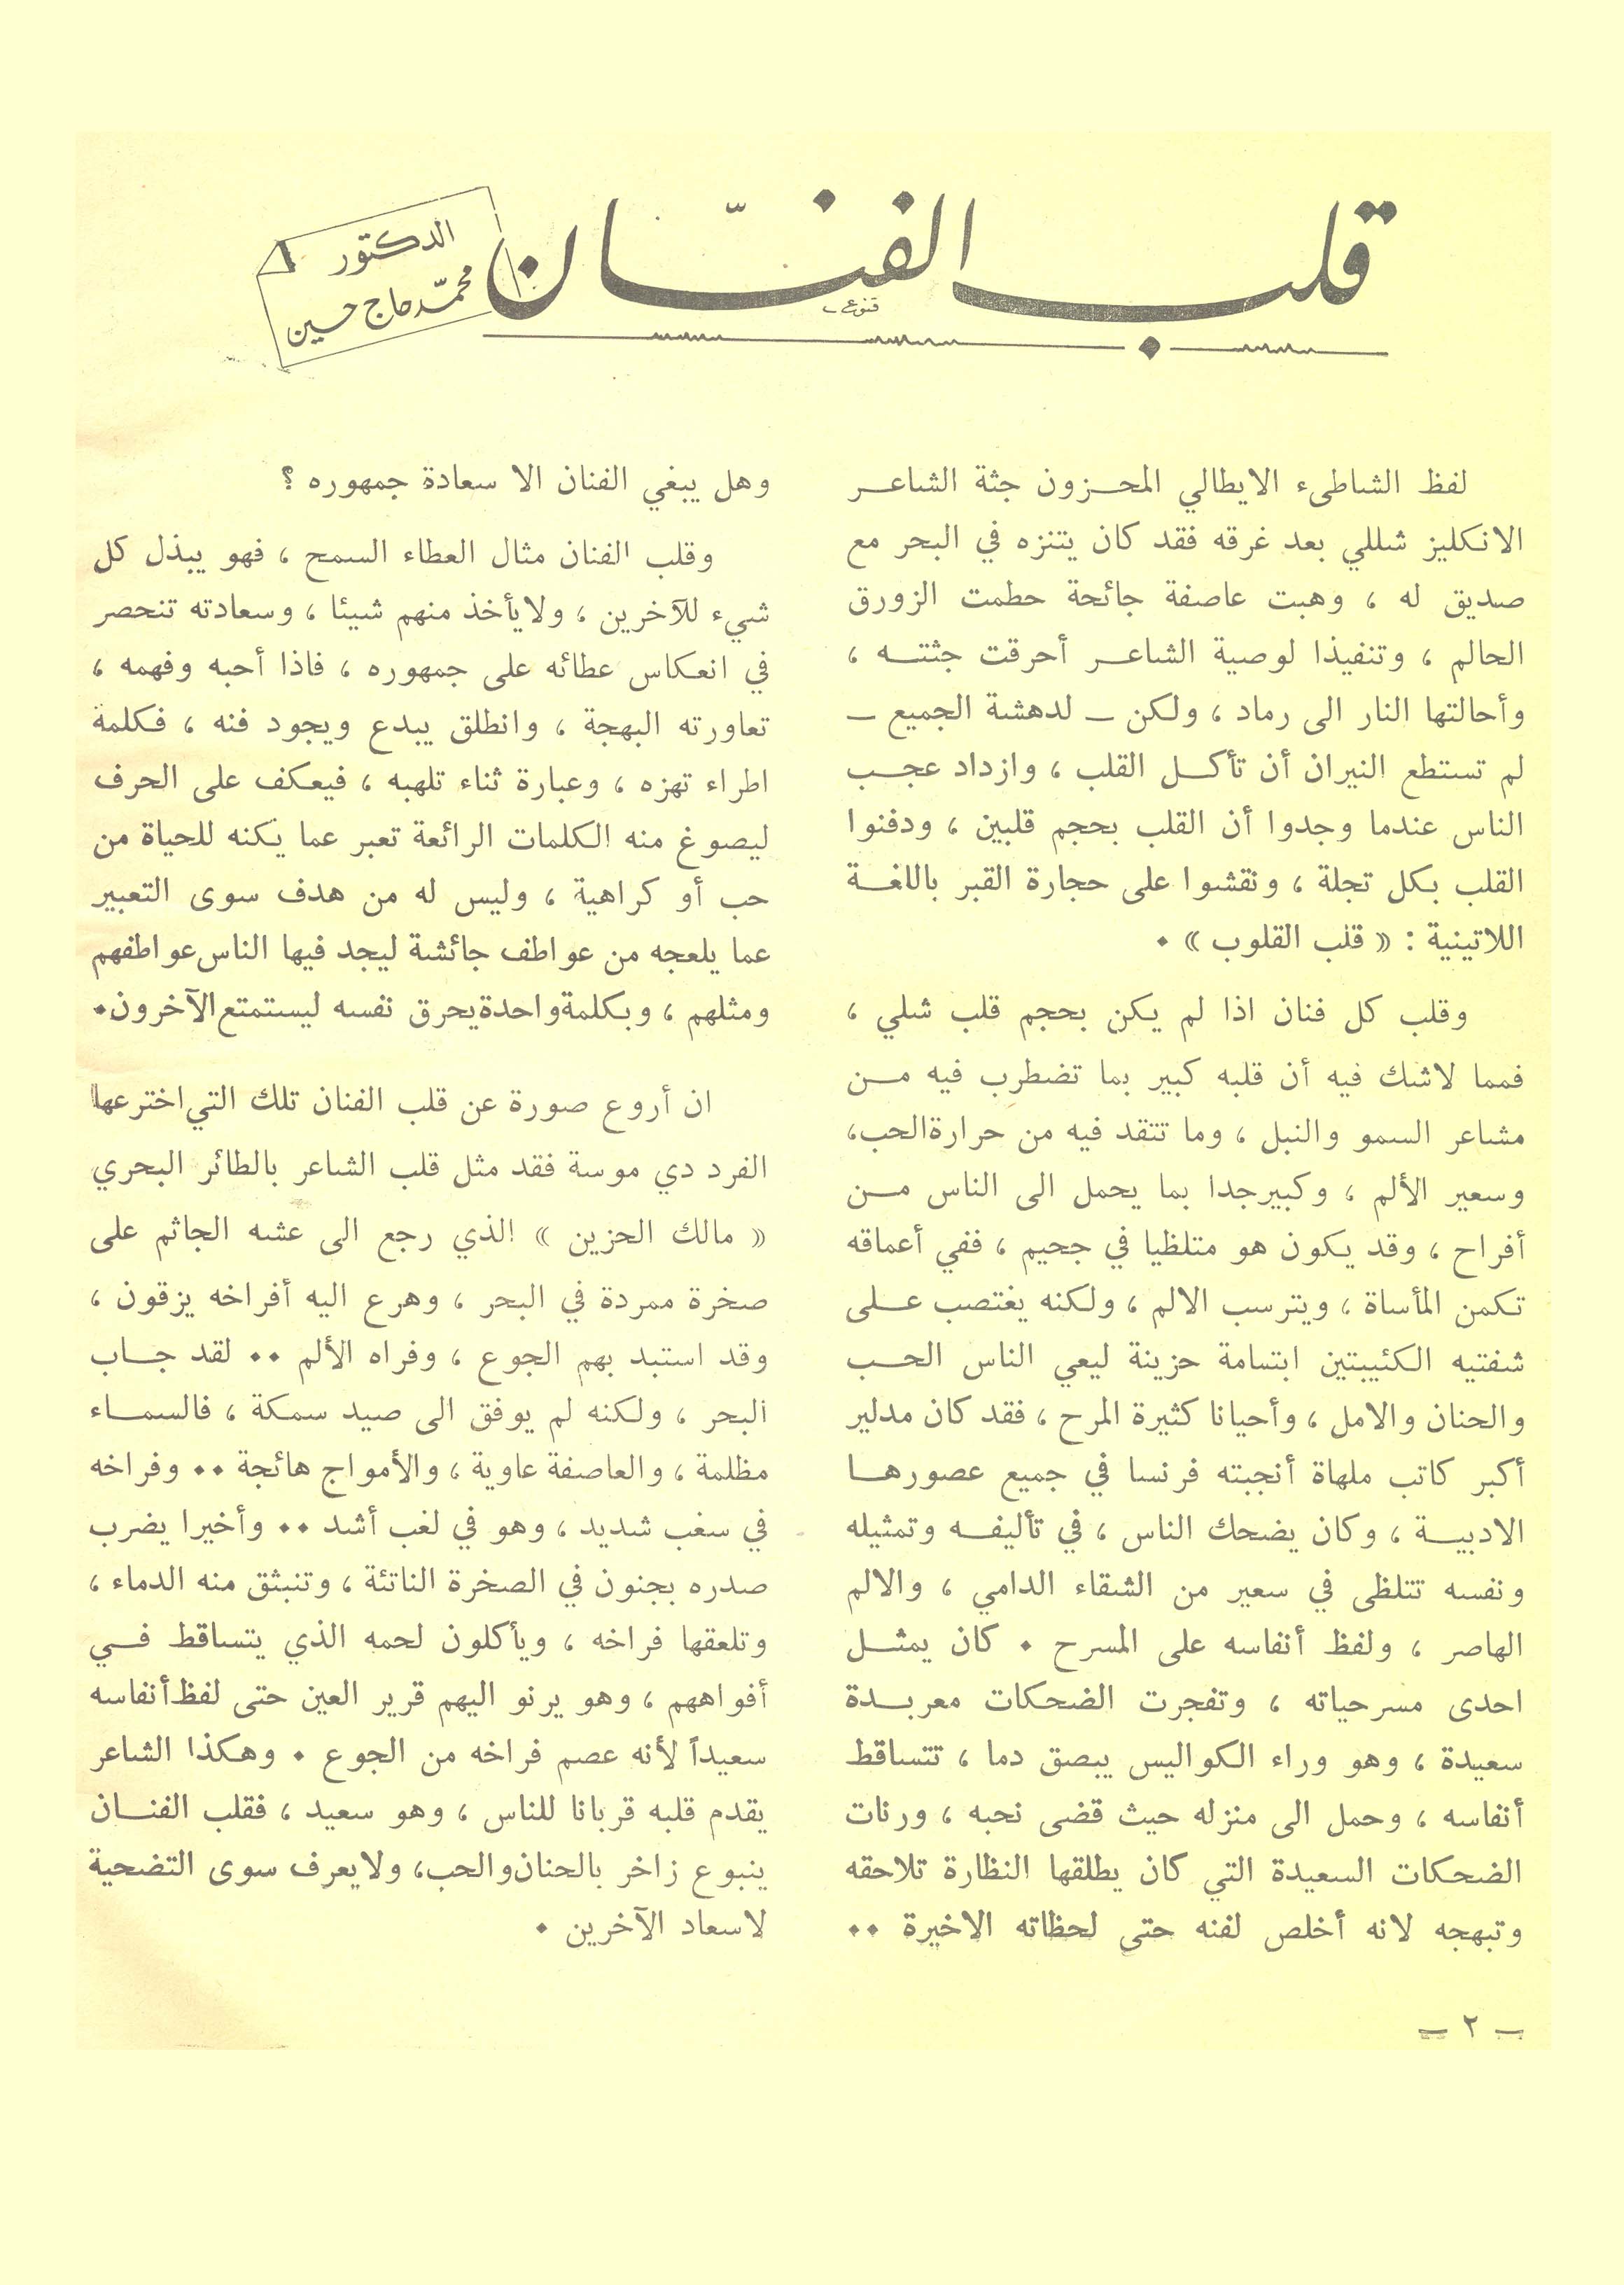 قلب الفنّان
قنوع
الدكتور
محمّد حاج حسين
لفظ الشاطىء الايطالي المحزون جثة الشاعر
الانكليز شللي بعد غرقه فقد كان يتنزه في البحر مع
صديق له ، وهبت عاصفة جائحة حطمت الزورق
الحالم ، وتنفيذا لوصية الشاعر أحرقت جثته ،
وأحالتها النار الى رماد ، ولكن – لدهشة الجميع –
لم تستطع النيران أن تأكل القلب ، وازداد عجب
الناس عندما وجدوا أن القلب بحجم قلبين ، ودفنوا
القلب بكل تجلة ، ونقشوا على حجارة القبر باللغة
اللاتينية : « قلب القلوب » .
وقلب كل فنان اذا لم يكن بحجم قلب شلي ،
فمما لاشك فيه أن قلبه كبير بما تضطرب فيه من
مشاعر السمو والنبل ، وما تتقد فيه من حرارة الحب،
وسعير الألم ، وكبير جدا بما يحمل الى الناس من
أفراح ، وقد يكون هو متلظيا في جحيم ، ففي أعماقه
تكمن المأساة ، ويترسب الالم ، ولكنه يغتصب على
شفتيه الكئيبتين ابتسامة حزينة ليعي الناس الحب
والحنان والامل ، وأحيانا كثيرة المرح ، فقد كان مدلير
أكبر كاتب ملهاة أنجبته فرنسا في جميع عصورها
الادبية ، وكان يضحك الناس ، في تأليفه وتمثيله
ونفسه تتلظى في سعير من الشقاء الدامي ، والالم
الهاصر ، ولفظ أنفاسه على المسرح . كان يمثل
احدى مسرحياته ، وتفجرت الضحكات معربدة
سعيدة ، وهو وراء الكواليس يبصق دما ، تتساقط
أنفاسه ، وحمل الى منزله حيث قضى نحبه ، ورنات
الضحكات السعيدة التي كان يطلقها النظارة تلاحقه
وتبهجه لانه أخلص لفنه حتى لحظاته الاخيرة ..
وهل يبغي الفنان الا سعادة جمهوره ؟
وقلب الفنان مثال العطاء السمح ، فهو يبذل كل
شيء للآخرين ، ولايأخذ منهم شيئا ، وسعادته تنحصر
في انعكاس عطائه على جمهوره ، فاذا أحبه وفهمه ،
تعاورته البهجة ، وانطلق يبدع ويجود فنه ، فكلمة
اطراء تهزه ، وعبارة ثناء تلهبه ، فيعكف على الحرف
ليصوغ منه الكلمات الرائعة تعبر عما يكنه للحياة من
حب أو كراهية ، وليس له من هدف سوى التعبير
عما يلعجه من عواطف جائشة ليجد فيها الناس عواطفهم
ومثلهم ، وبكلمة واحدة يحرق نفسه ليستمتع الآخرون.
ان أروع صورة عن قلب الفنان تلك التي اخترعها
الفرد دي موسة فقد مثل قلب الشاعر بالطائر البحري
« مالك الحزين » الذي رجع الى عشه الجاثم على
صخرة ممردة في البحر ، وهرع اليه أفراخه يزقون ،
وقد استبد بهم الجوع ، وفراه الألم .. لقد جاب
البحر ، ولكنه لم يوفق الى صيد سمكة ، فالسماء
مظلمة ، والعاصفة عاوية ، والأمواج هائجة .. وفراخه
في سغب شديد ، وهو في لغب أشد .. وأخيرا يضرب
صدره بجنون في الصخرة الناتئة ، وتنبثق منه الدماء ،
وتلعقها فراخه ، ويأكلون لحمه الذي يتساقط في
أفواههم ، وهو يرنو اليهم قرير العين حتى لفظ أنفاسه
سعيداً لأنه عصم فراخه من الجوع . وهكذا الشاعر
يقدم قلبه قربانا للناس ، وهو سعيد ، فقلب الفنان
ينبوع زاخر بالحنان والحب، ولايعرف سوى التضحية
لاسعاد الآخرين .
– ٢ –